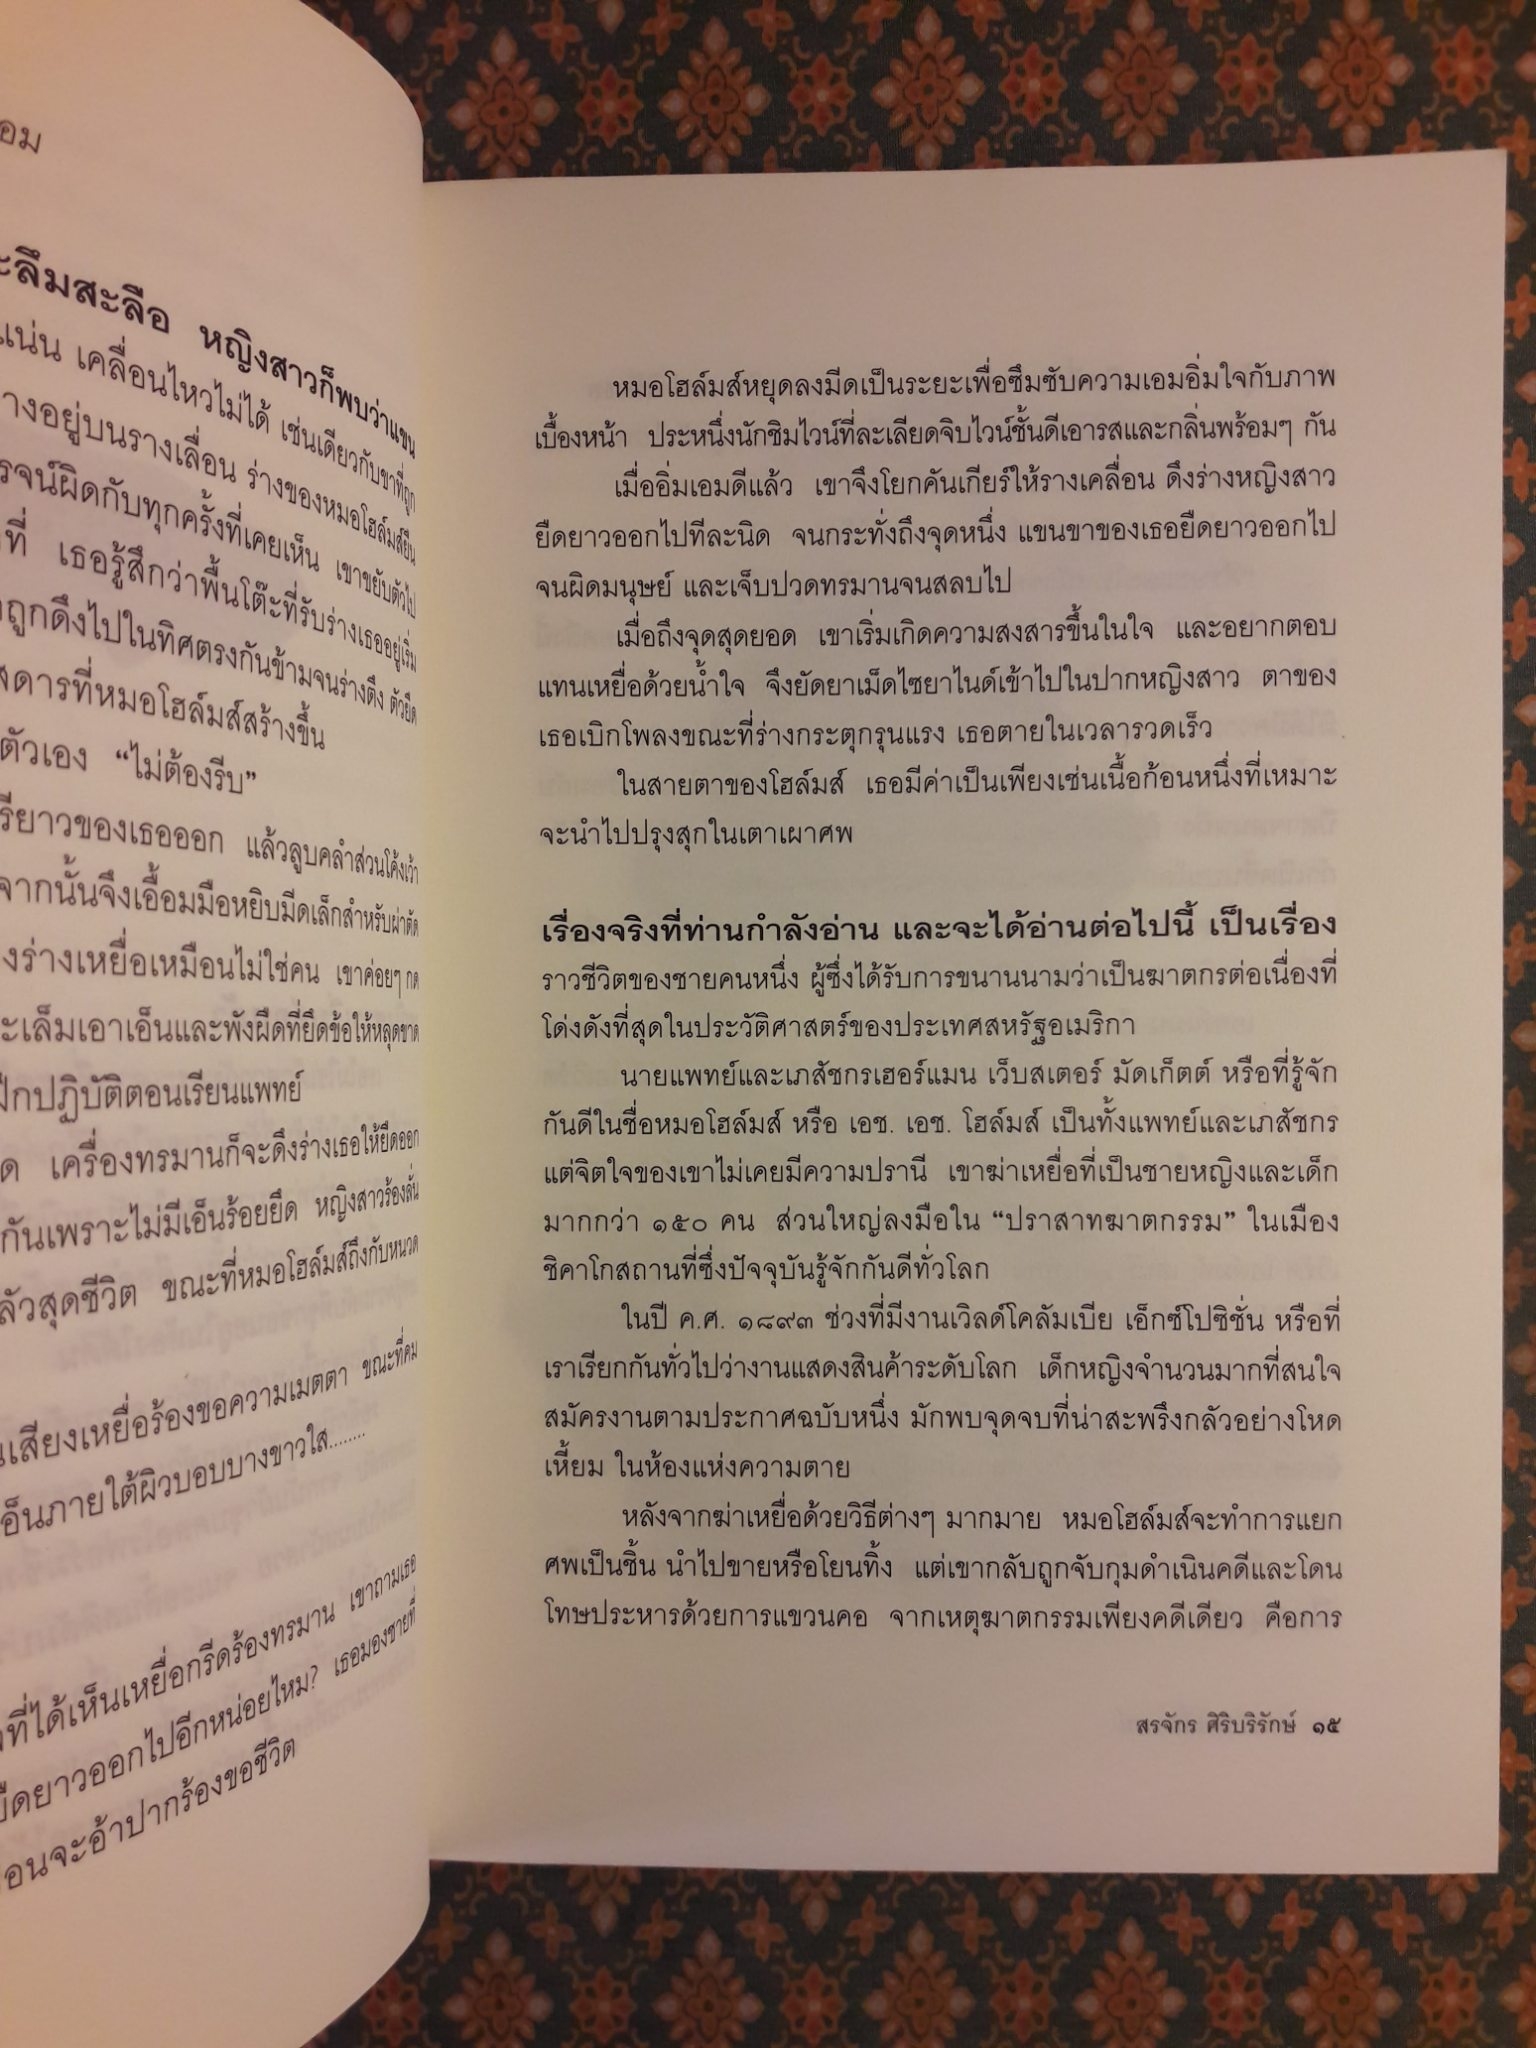 อม
ะลึมสะลือ หญิงสาวก็พบว่าแขน
แน่น เคลื่อนไหวไม่ได้ เช่นเดียวกับขาที่ถูก
างอยู่บนรางเลื่อน ร่างของหมอโฮล์มส์ยืน
รจน์ผิดกับทุกครั้งที่เคยเห็น เขาขยับตัวไป
ที่ เธอรู้สึกว่าพื้นโต๊ะที่รับร่างเธออยู่เริ่ม
ถูกดึงไปในทิศตรงกันข้ามจนร่างตึง ตัวยืด
งดารที่หมอโฮล์มส์สร้างขึ้น
ตัวเอง “ไม่ต้องรีบ”
รียาวของเธอออก แล้วลูบคลำส่วนโค้งเว้า
จากนั้นจึงเอื้อมมือหยิบมีดเล็กสำหรับผ่าตัด
งร่างเหยื่อเหมือนไม่ใช่คน เขาค่อยๆ กด
ะเล็มเอาเอ็นและพังผืดที่ยึดข้อให้หลุดขาด
ฝึกปฏิบัติตอนเรียนแพทย์
ด เครื่องทรมานก็จะดึงร่างเธอให้ยืดออก
กันเพราะไม่มีเอ็นร้อยยึด หญิงสาวร้องลั่น
ลัวสุดชีวิต ขณะที่หมอโฮล์มส์ถึงกับหนวด
นเสียงเหยื่อร้องขอความเมตตา ขณะที่คม
อ็นภายใต้ผิวบอบบางขาวใส........
ที่ได้เห็นเหยื่อกรีดร้องทรมาน เขาถามเธอ
ยืดยาวออกไปอีกหน่อยไหม? เธอมองชายที่
อนจะอ้าปากร้องขอชีวิต
หมอโฮล์มส์หยุดลงมีดเป็นระยะเพื่อซึมซับความเอมอิ่มใจกับภาพ
เบื้องหน้า ประหนึ่งนักชิมไวน์ที่ละเลียดจิบไวน์ชั้นดีเอารสและกลิ่นพร้อมๆ กัน
เมื่ออิ่มเอมดีแล้ว เขาจึงโยกคันเกียร์ให้รางเคลื่อน ดึงร่างหญิงสาว
ยืดยาวออกไปทีละนิด จนกระทั่งถึงจุดหนึ่ง แขนขาของเธอยืดยาวออกไป
จนผิดมนุษย์ และเจ็บปวดทรมานจนสลบไป
เมื่อถึงจุดสุดยอด เขาเริ่มเกิดความสงสารขึ้นในใจ และอยากตอบ
แทนเหยื่อด้วยน้ำใจ จึงยัดยาเม็ดไซยาไนด์เข้าไปในปากหญิงสาว ตาของ
เธอเบิกโพลงขณะที่ร่างกระตุกรุนแรง เธอตายในเวลารวดเร็ว
ในสายตาของโฮล์มส์ เธอมีค่าเป็นเพียงเช่นเนื้อก้อนหนึ่งที่เหมาะ
จะนำไปปรุงสุกในเตาเผาศพ
เรื่องจริงที่ท่านกำลังอ่าน และจะได้อ่านต่อไปนี้ เป็นเรื่อง
ราวชีวิตของชายคนหนึ่ง ผู้ซึ่งได้รับการขนานนามว่าเป็นฆาตกรต่อเนื่องที่
โด่งดังที่สุดในประวัติศาสตร์ของประเทศสหรัฐอเมริกา
นายแพทย์และเภสัชกรเฮอร์แมน เว็บสเตอร์ มัดเก็ตต์ หรือที่รู้จัก
กันดีในชื่อหมอโฮล์มส์ หรือ เอช. เอช. โฮล์มส์ เป็นทั้งแพทย์และเภสัชกร
แต่จิตใจของเขาไม่เคยมีความปรานี เขาฆ่าเหยื่อที่เป็นชายหญิงและเด็ก
มากกว่า ๑๕๐ คน ส่วนใหญ่ลงมือใน “ปราสาทฆาตกรรม” ในเมือง
ชิคาโกสถานที่ซึ่งปัจจุบันรู้จักกันดีทั่วโลก
ในปี ค.ศ. ๑๘๙๓ ช่วงที่มีงานเวิลด์โคลัมเบีย เอ็กซ์โปซิชั่น หรือที่
เราเรียกกันทั่วไปว่างานแสดงสินค้าระดับโลก เด็กหญิงจำนวนมากที่สนใจ
สมัครงานตามประกาศฉบับหนึ่ง มักพบจุดจบที่น่าสะพรึงกลัวอย่างโหด
เหี้ยม ในห้องแห่งความตาย
หลังจากฆ่าเหยื่อด้วยวิธีต่างๆ มากมาย หมอโฮล์มส์จะทำการแยก
ศพเป็นชิ้น นำไปขายหรือโยนทิ้ง แต่เขากลับถูกจับกุมดำเนินคดีและโดน
โทษประหารด้วยการแขวนคอ จากเหตุฆาตกรรมเพียงคดีเดียว คือการ
สรจักร ศิริบริรักษ์ ๑๕